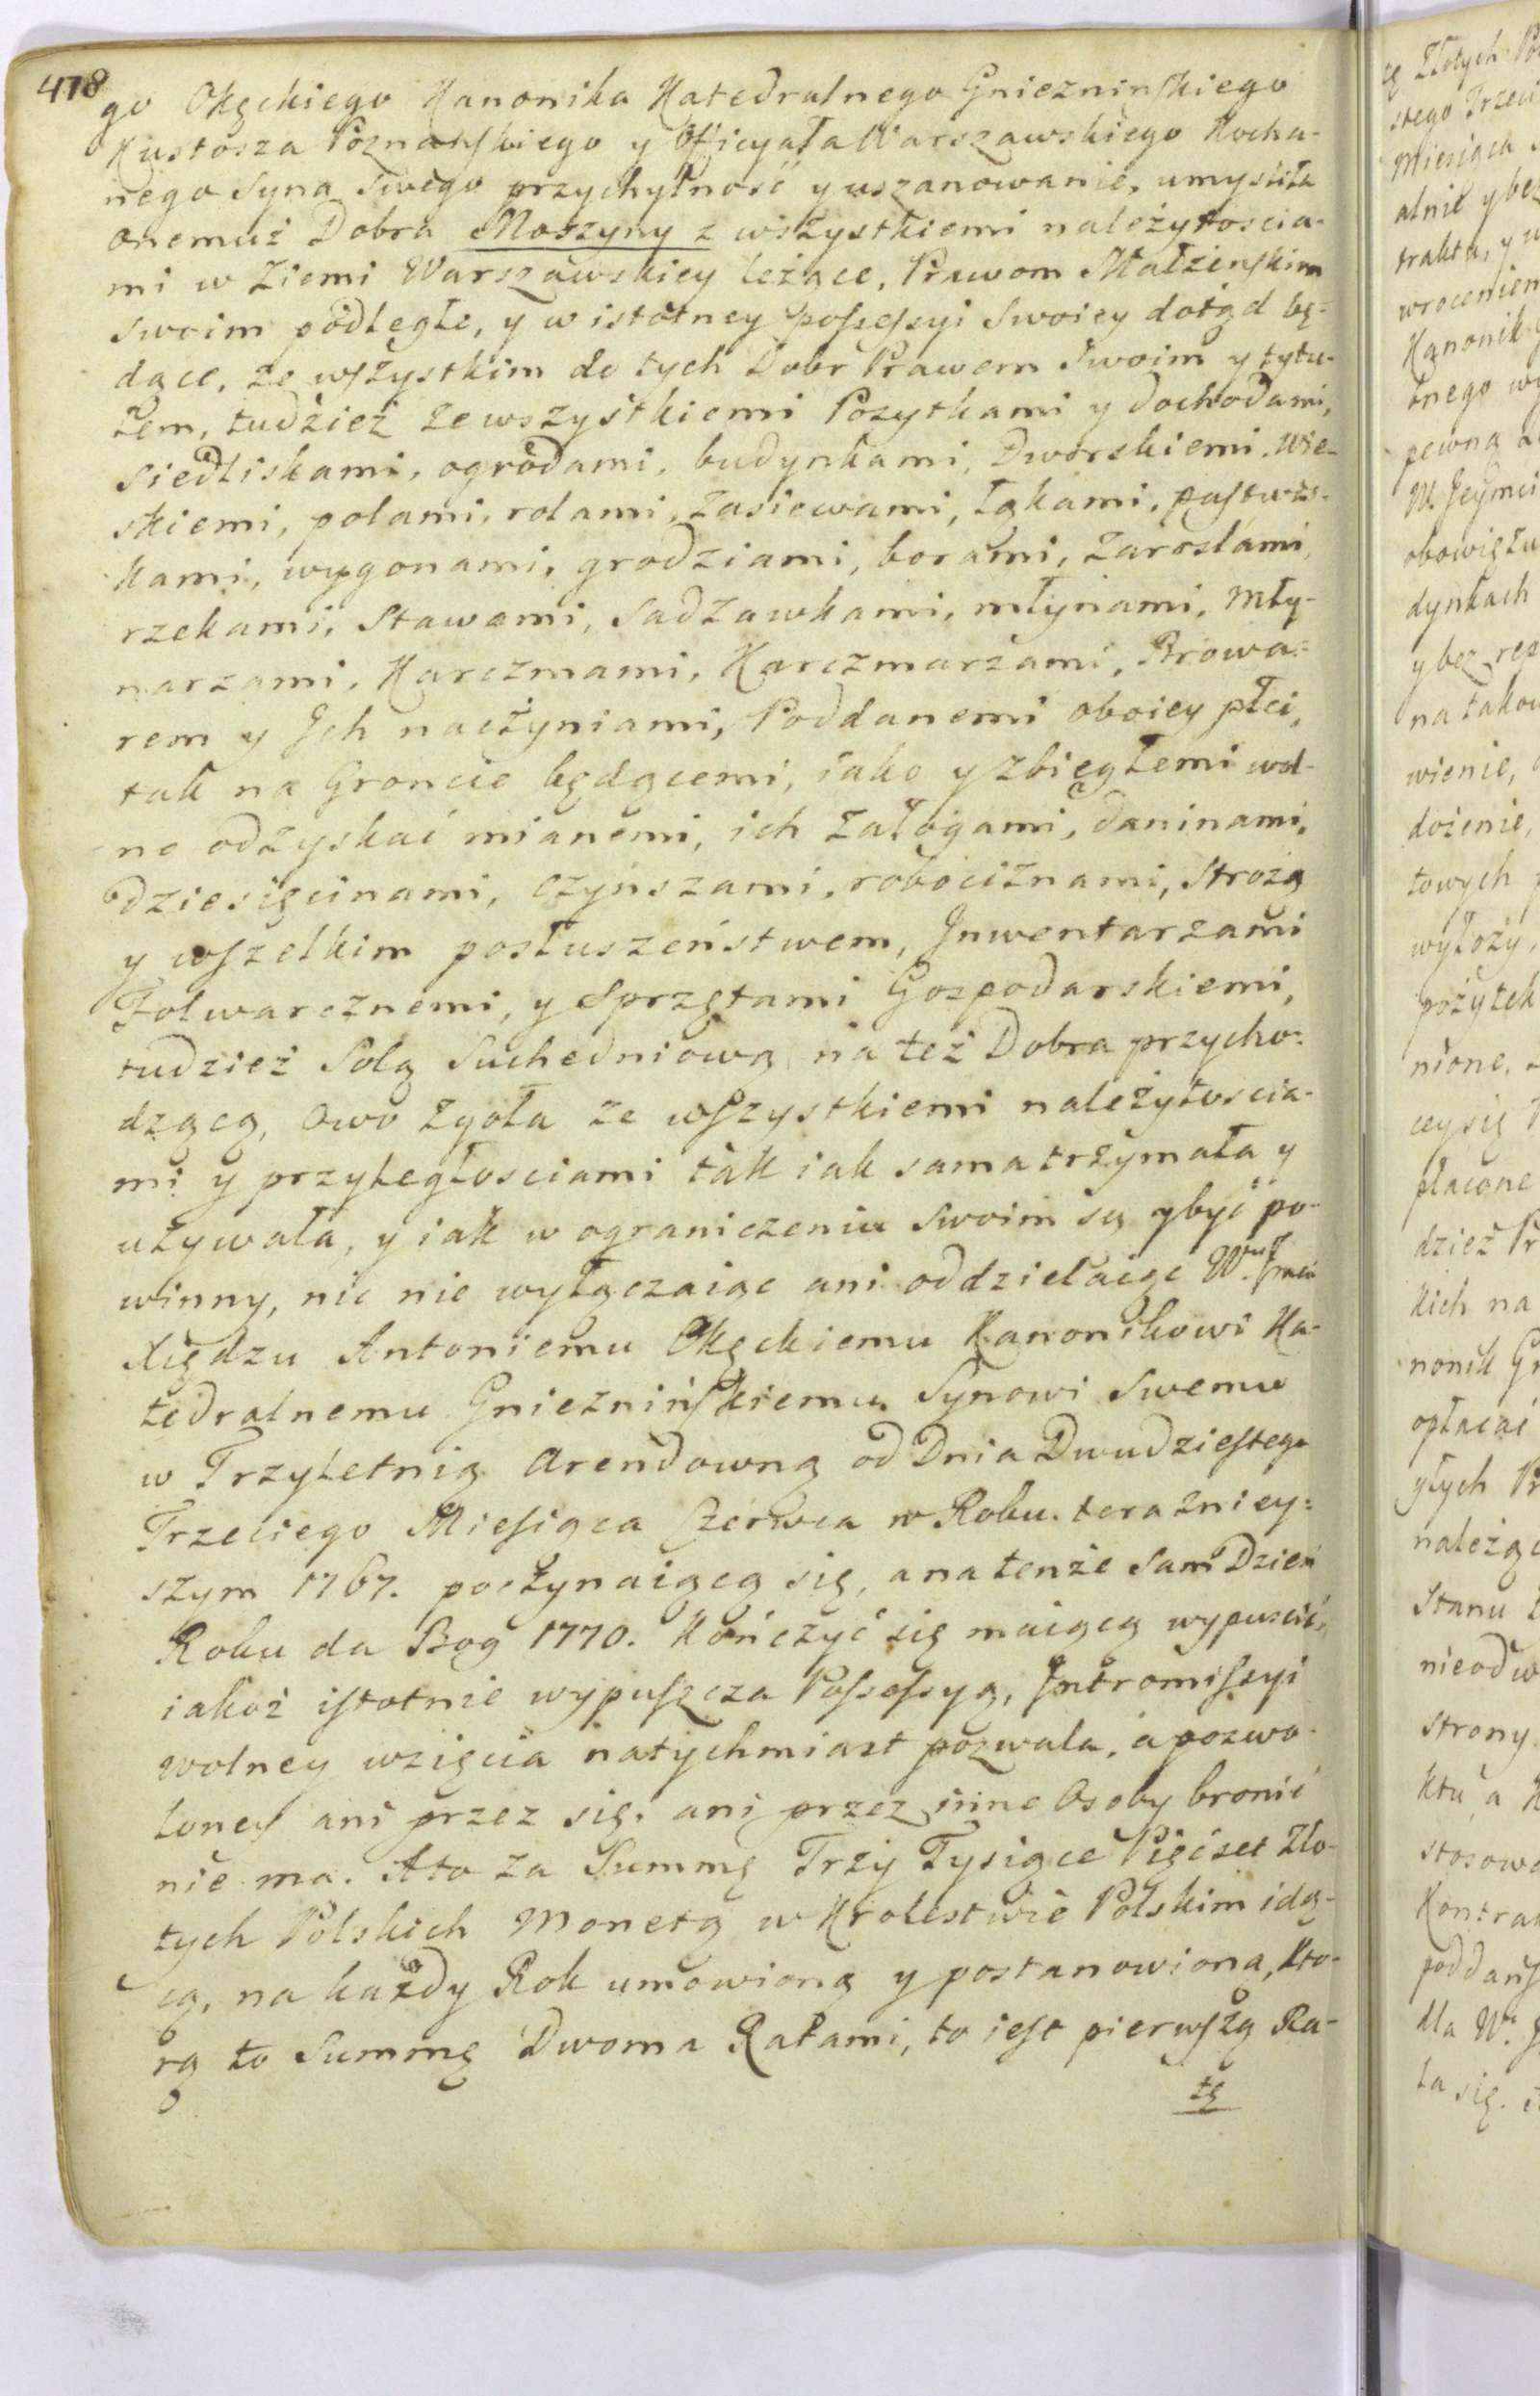 478
go Okęckiego Kanonika Katedralnego Gniezninskiego
Kustosza Poznanskiego y Officyała Warszawskiego Kocha-
nego Syna Swego przychylność y uszanowanie, umyśliła
onemuż Dobra Moszyny z wszystkiemi należytościa-
mi w Ziemi Warszawskiey leżące, Prawom Małżenskim
swoim podległe, y w istotney possessyi Swoiey dotąd bę-
dące, ze wszystkim do tych Dobr Prawem Swoim y tytu-
łem, tudzież ze wszystkiemi Pozytkami y dochodami,
siedliskami, ogrodami, budynkami, Dworskiemi, Wie-
skiemi, polami, rolami, zasiewami, łąkami, pastwis-
kami, wygonami, grodziami, borami, zaroslami,
rzekami, Stawami, Sadzawkami, młynami, Mły-
narzami, Karczmami, Karczmarzami, Browa-
rem y Jch naczyniami, Poddanemi oboiey płci,
tak na Groncie będącemi, iako y zbiegłemi wol-
no odzyskać mianemi, ich załogami, daninami,
dziesięcinami, czynszami, robociznami, Strożą
y wszelkim posłuszeństwem, Jnwentarzami
Folwarcznemi, y Sprzętami Gospodarskiemi,
tudzież Solą Suchedniową na też Dobra przycho-
dzącą, owo zgoła ze wszystkiemi należytoscia-
mi y przyległosciami tak iak sama trzymała y
używała, y iak w ograniczeniu swoim są y być po-
winny, nic nie wyłączaiąc ani oddzielaiąc W.
Xiędzu Antoniemu Okęckiemu Kanonikowi Ka-
tedralnemu Gnieznińskiemu Synowi Swemu
w Trzyletnią Arendowną od Dnia Dwudziestego
Trzeciego Miesiąca Czerwca w Roku teraźniey-
szym 1767. poczynaiącą się, a na tenże sam Dzień
Roku da Bog 1770. Kończyć się maiącą wypuscić,
iakoż istotnie wypuszcza Possessyą, Jntromissyi
wolney wzięcia natychmiast pozwala, a pozwo-
loney ani przez się, ani przez inne Osoby bronić
nie ma. A to za Summę Trzy Tysiące Pięćset Zło-
tych Polskich Monetą w Krolestwie Polskim idą-
cą, na każdy Rok umowioną y postanowioną, Kto-
rą to Summę Dwoma Ratami, to iest pierwszą Ra-
tę
tę Złotych
stego Trzeci
Miesiąca
alnie y bez
traktu, y w
wroceniem
Kanonik
tnego
pewną
W. Jeymci
obowiązu
dynkach
y bez
na takow
wienie,
dożenie,
towych
wyłoży,
pożytek
nione,
cey się
płacone
dzież Pr
kich na
nonik Gn
opłacać
głych
należąc
Stanu
nieodw
strony
ktu a
stosowa
Kontrak
poddańs
dla W.
ta się.